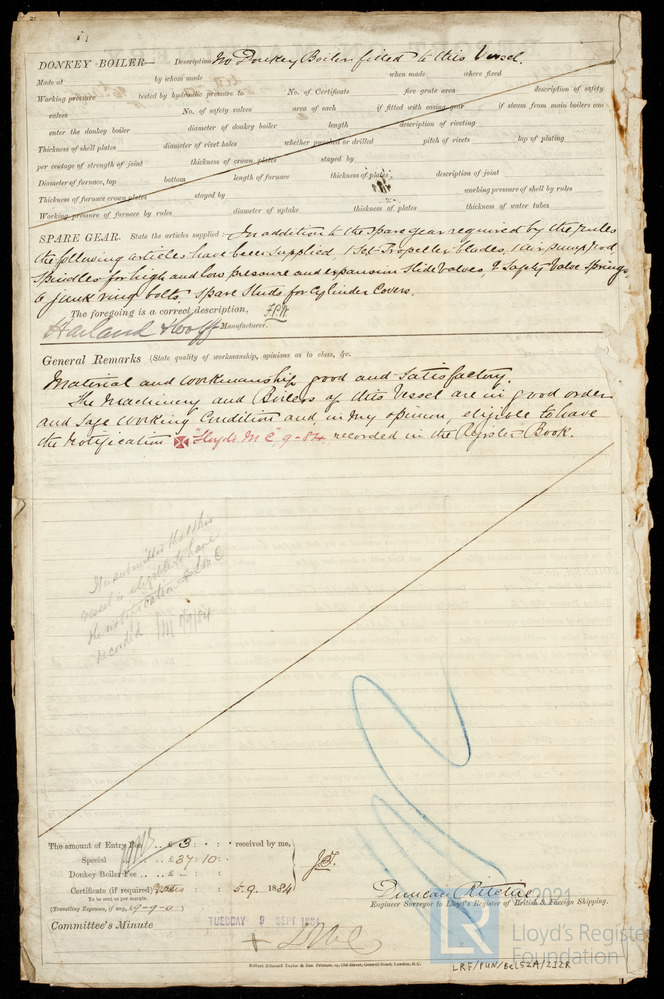 DONKEY BOILER— Description No Donkey Boiler fitted to this Vessel.
Made at by whom made when made where fixed
Working pressure tested by hydraulic pressure to No. of Certificate fire grate area description of safety
valves No. of safety valves area of each if fitted with easing gear if steam from main boilers can
enter the donkey boiler diameter of donkey boiler length description of riveting
Thickness of shell plates diameter of rivet holes whether punched or drilled pitch of rivets lap of plating
per centage of strength of joint thickness of crown plates stayed by
Diameter of furnace, top bottom length of furnace thickness of plates description of joint
Thickness of furnace crown plates stayed by working pressure of shell by rules
Working pressure of furnace by rules diameter of uptake thickness of plates thickness of water tubes
SPARE GEAR. State the articles supplied:— In addition to the spare gear required by the rules
the following articles have been supplied, 1 Set Propeller blades, 1 air pump rod
Spindles for high and low pressure and expansion slide valves, 2 Safety Valve Springs,
6 junk ring bolts, Spare Studs for Cylinder Covers.
The foregoing is a correct description,
Harland & Wolff Manufacturer.
General Remarks (State quality of workmanship, opinions as to class, &c.
Material and workmanship good and satisfactory.
The Machinery and Boilers of this Vessel are in good order
and safe working Condition and in my opinion, eligible to have
the notification "Lloyd's M C" 9-84 recorded in the Register Book.
It is submitted that this
vessel is eligible to have
the notification LMC
recorded 8/9/84
The amount of Entry Fee .. £ 3 : : received by me,
Special .. £ 37 : 10 :
Donkey Boiler Fee .. £ – : :
Certificate (if required) : : 5.9. 1884
To be sent as per margin.
(Travelling Expenses, if any, £ 9-9-0)
Duncan Ritchie
Engineer Surveyor to Lloyd's Register of British & Foreign Shipping.
Committee's Minute
TUESDAY 9 SEPT 1884
+ LMC
2021
LR
Lloyd's Register
Foundation
Robert Edmund Taylor & Son, Printers, 19, Old Street, Goswell Road, London, E.C.
LRF/PUN/BEL52A/232R